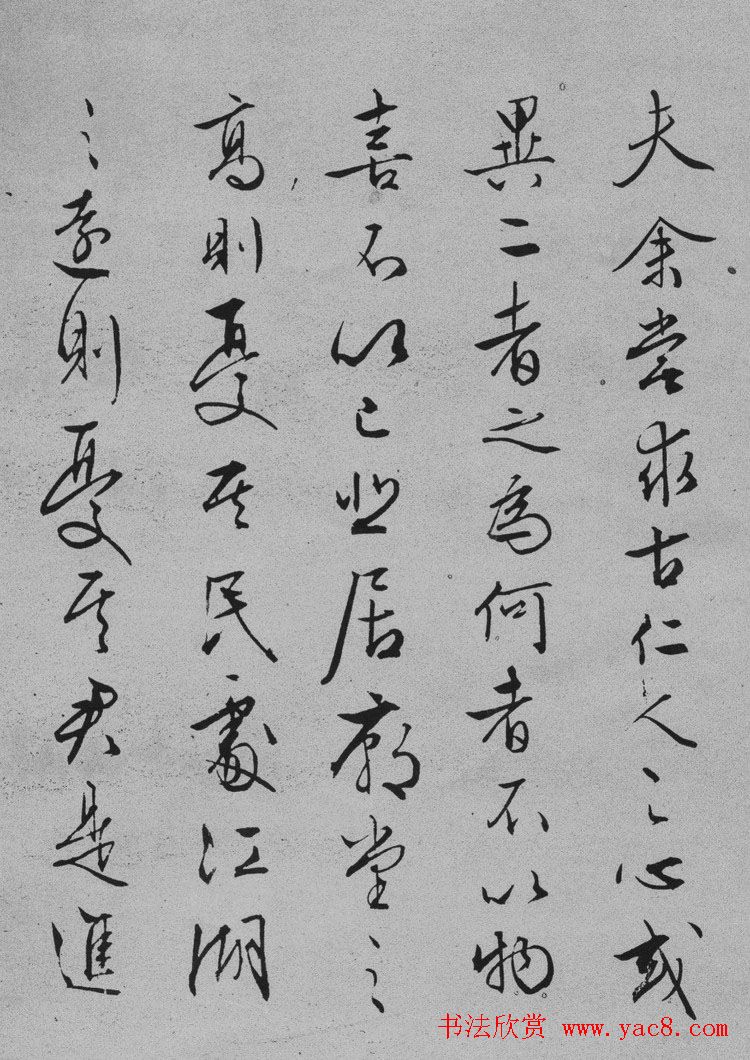 夫余嘗求古仁人之心或
異二者之為何者不以物
喜不以己悲居廟堂之
高則憂其民處江湖
之遠則憂其君是進
书法欣赏 www.yac8.com